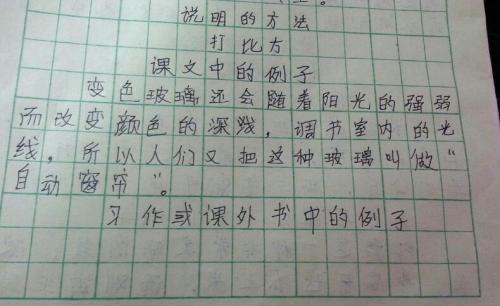 说明的方法
打比方
课文中的例子
变色玻璃还会随着阳光的强弱
而改变颜色的深浅，调节室内的光
线，所以人们又把这种玻璃叫做“
自动窗帘”。
习作或课外书中的例子